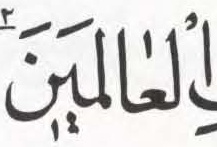 الْعٰالَمِينَ ٢